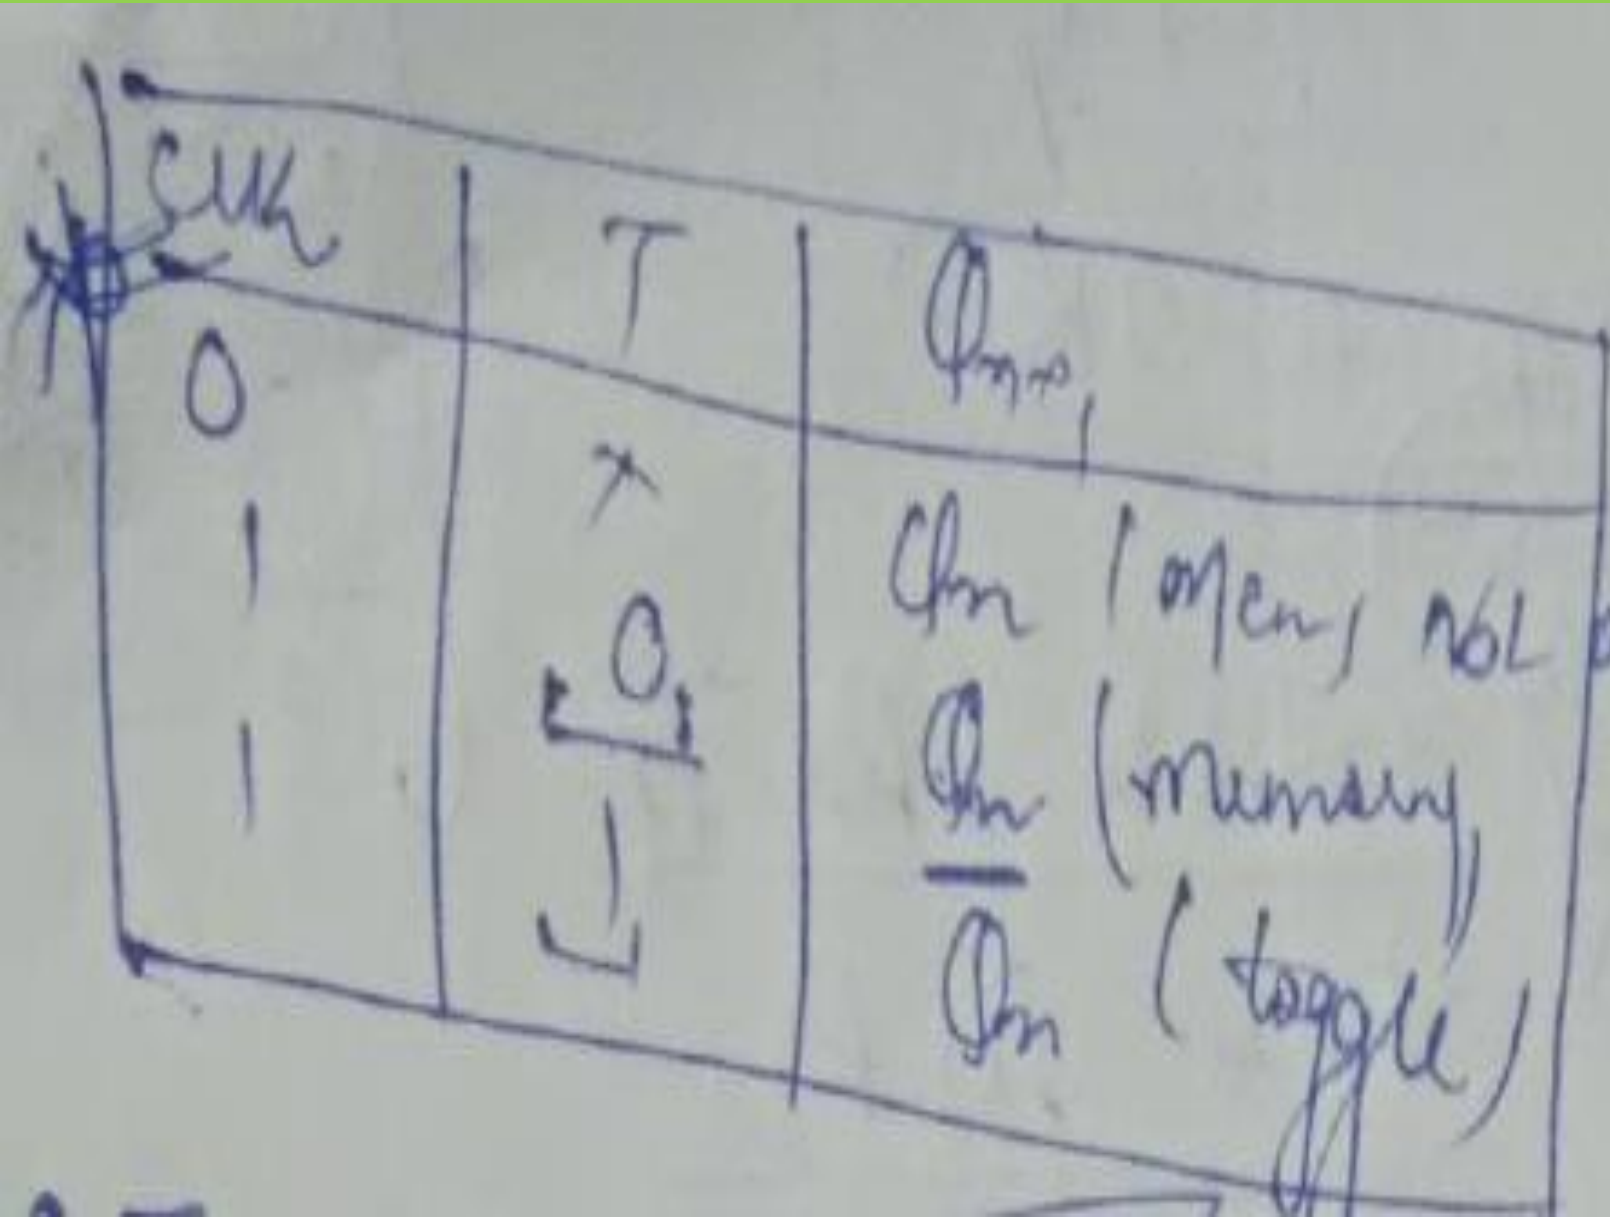 Clk T Qn+1
0 x Qn (Mem)
1 0 Qn (memory)
1 1 Q̅n (toggle)